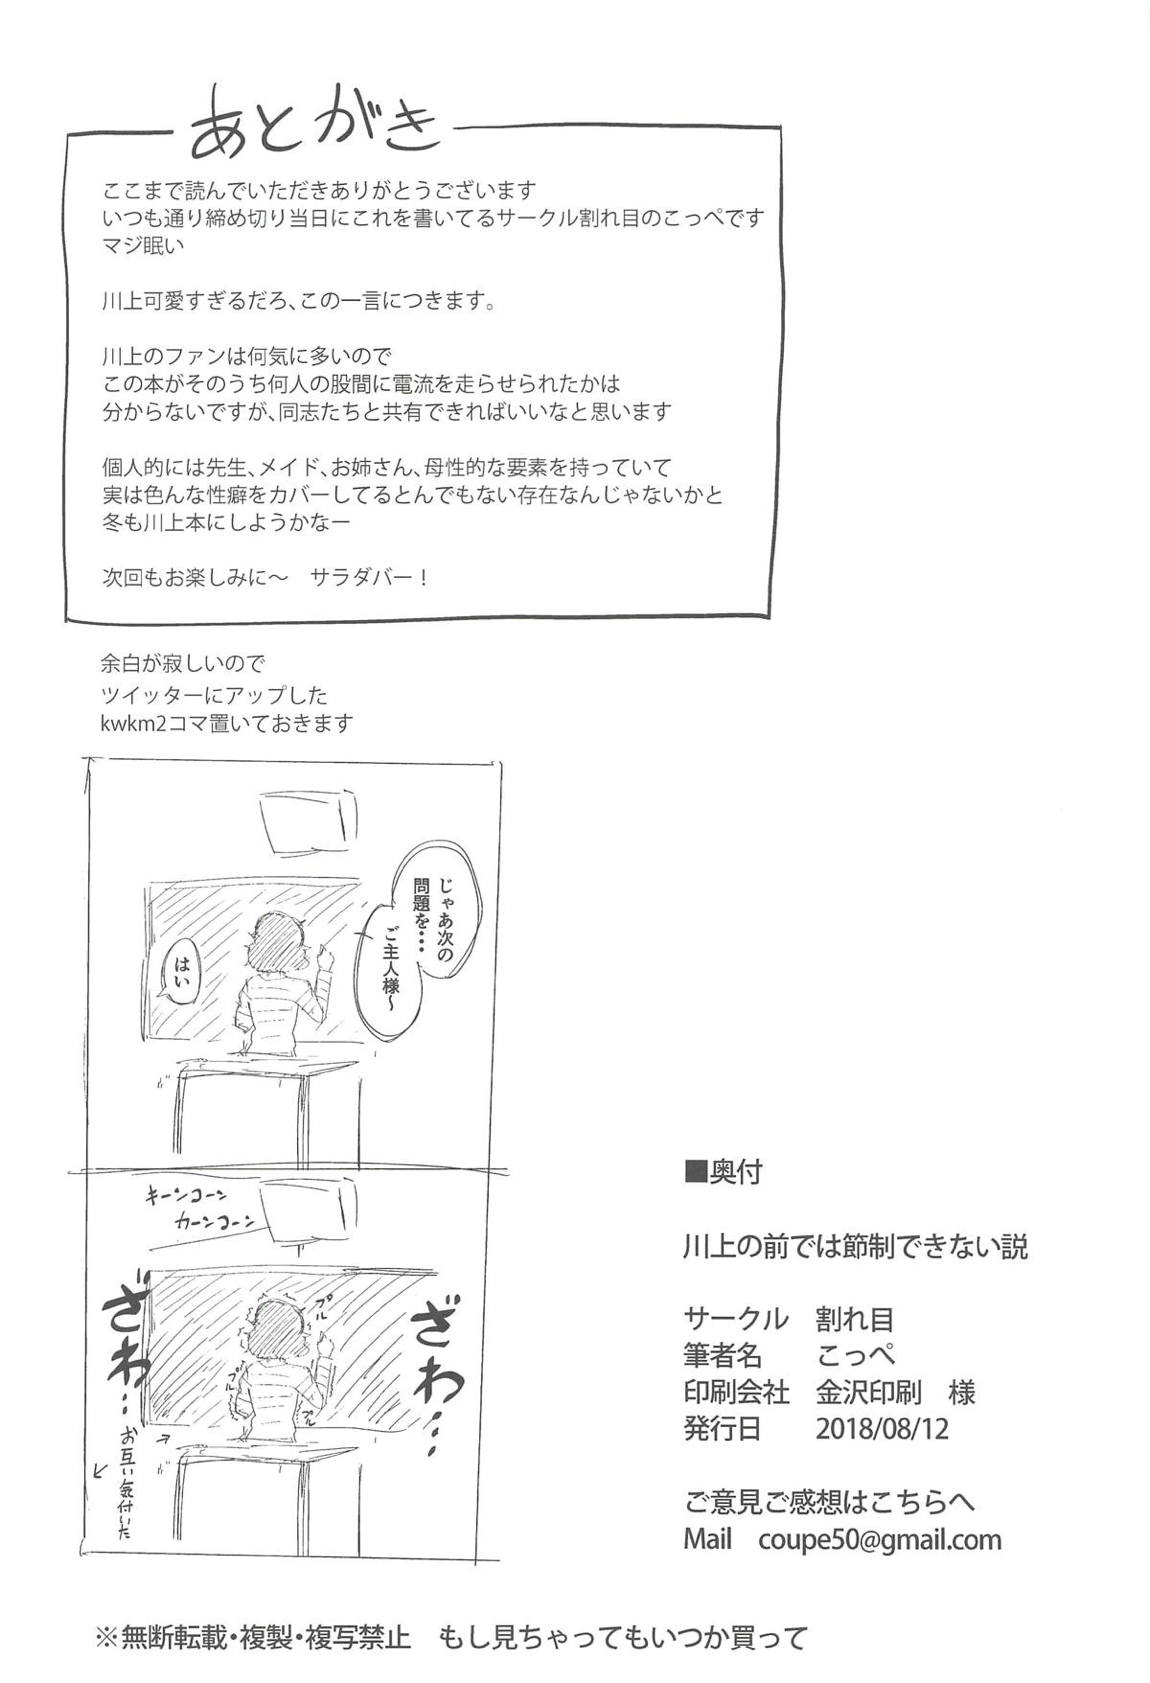 あとがき
ここまで読んでいただきありがとうございます
いつも通り締め切り当日にこれを書いてるサークル割れ目のこっぺです
マジ眠い
川上可愛すぎるだろ、この一言につきます。
川上のファンは何気に多いので
この本がそのうち何人の股間に電流を走らせられたかは
分からないですが、同志たちと共有できればいいなと思います
個人的には先生、メイド、お姉さん、母性的な要素を持っていて
実は色んな性癖をカバーしてるとんでもない存在なんじゃないかと
冬も川上本にしようかなー
次回もお楽しみに～　サラダバー！
余白が寂しいので
ツイッターにアップした
kwkm2コマ置いておきます
じゃあ次の
問題を・・・
ご主人様～
はい
キーンコーン
カーンコーン
ざわ・・・
ざわ・・・
プル
プル
プル
プル
お互い気付いた
■奥付
川上の前では節制できない説
サークル　割れ目
筆者名　　こっぺ
印刷会社　金沢印刷　様
発行日　　2018/08/12
ご意見ご感想はこちらへ
Mail　coupe50@gmail.com
※無断転載・複製・複写禁止　もし見ちゃってもいつか買って